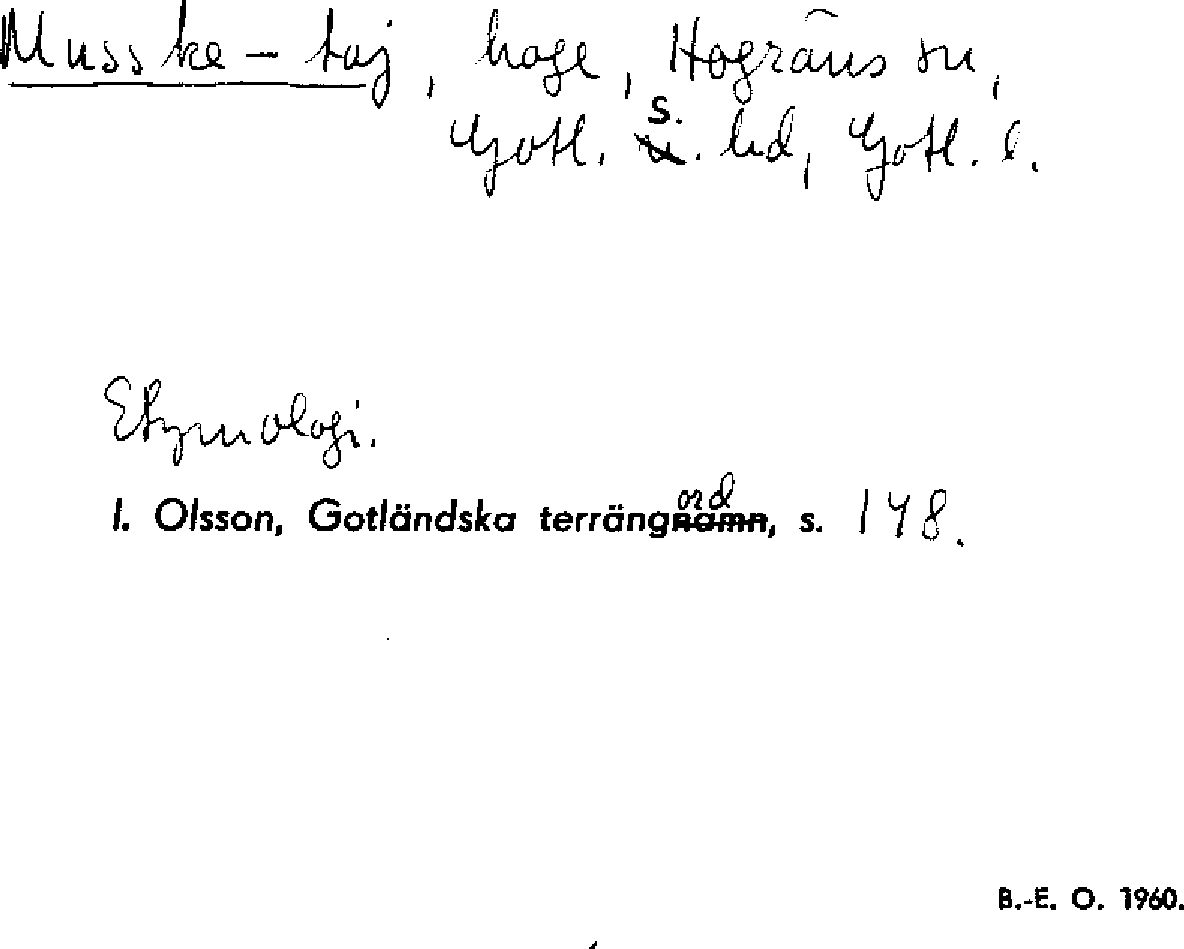 Musske-taj, hage, Hogräns sn,
Gotl. s. hd, Gotl. l.
Etymologi.
I. Olsson, Gotländska terrängord, s. 148.
B.-E. O. 1960.